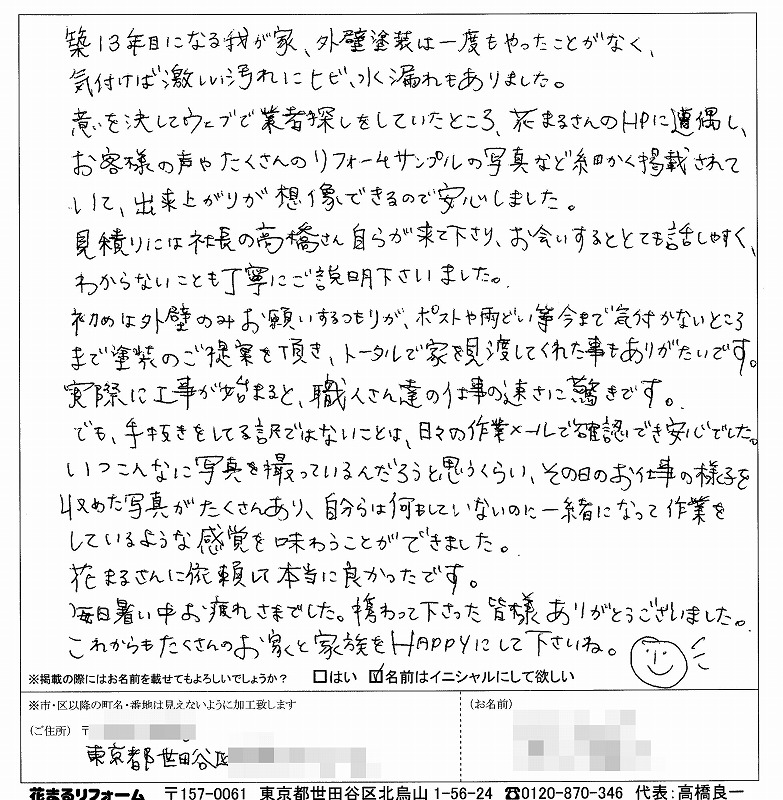 築13年目になる我が家、外壁塗装は一度もやったことがなく、
気付けば激しい汚れにヒビ、水漏れもありました。
意を決してウェブで業者探しをしていたところ、花まるさんのHPに遭遇し、
お客様の声やたくさんのリフォームサンプルの写真など細かく掲載されて
いて、出来上がりが想像できるので安心しました。
見積りには社長の高橋さん自らが来て下さり、お会いするととても話しやすく、
わからないことも丁寧にご説明下さいました。
初めは外壁のみお願いするつもりが、ポストや雨どい等今まで気付かないところ
まで塗装のご提案を頂き、トータルで家を見渡してくれた事もありがたいです。
実際に工事が始まると、職人さん達の仕事の速さに驚きです。
でも、手抜きをしてる訳ではないことは、日々の作業メールで確認でき安心でした。
いつこんなに写真を撮っているんだろうと思うくらい、その日のお仕事の様子を
収めた写真がたくさんあり、自分らは何もしていないのに一緒になって作業を
しているような感覚を味わうことができました。
花まるさんに依頼して本当に良かったです。
毎日暑い中お疲れさまでした。携わって下さった皆様ありがとうございました。
これからもたくさんのお家と家族をHAPPYにして下さいね。
※掲載の際にはお名前を載せてもよろしいでしょうか？ □はい ☑名前はイニシャルにして欲しい
※市・区以降の町名・番地は見えないように加工致します
(お名前)
(ご住所) 〒
東京都世田谷区
花まるリフォーム 〒157-0061 東京都世田谷区北烏山1-56-24 ☎0120-870-346 代表:高橋良一